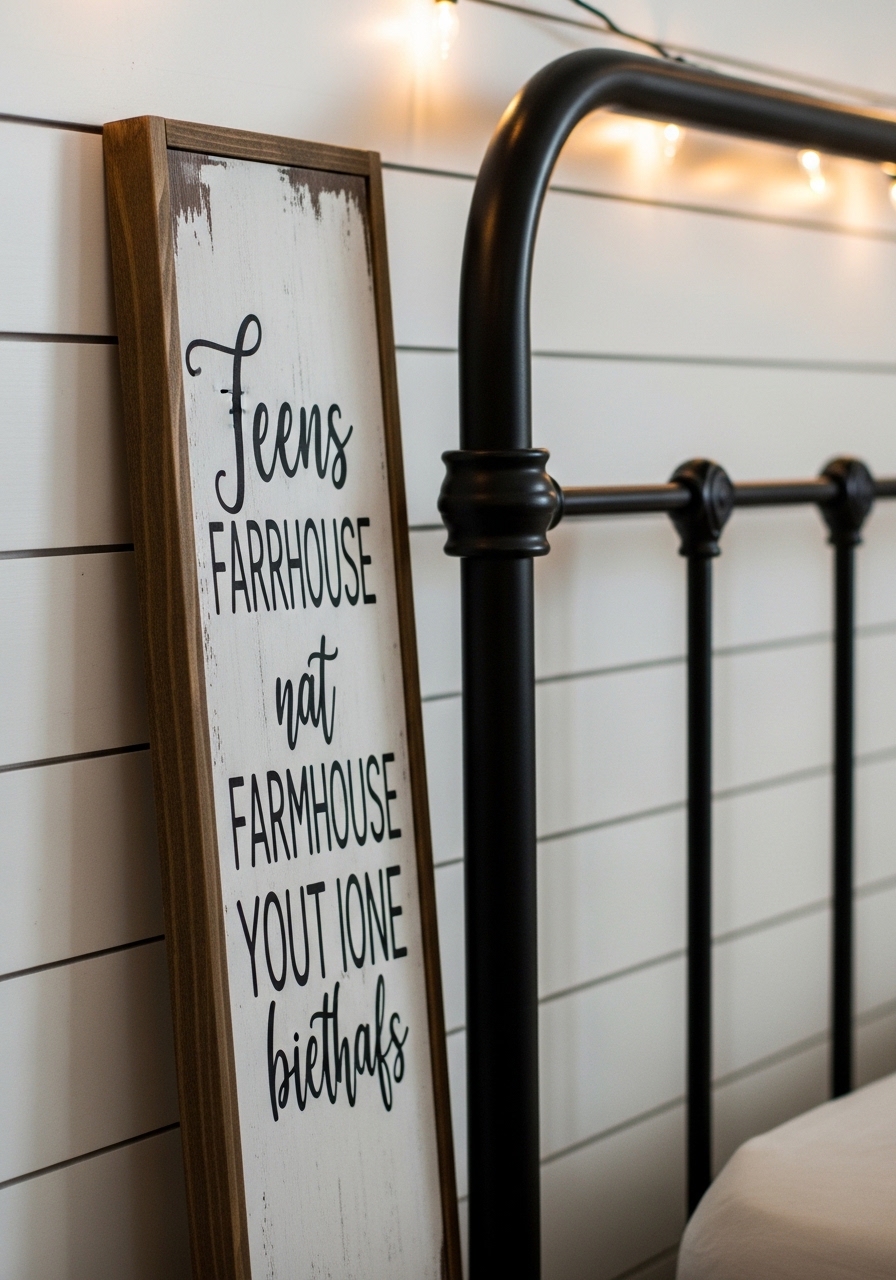 Feens
FARRHOUSE
nat
FARMHOUSE
YOUT IONE
biethafs